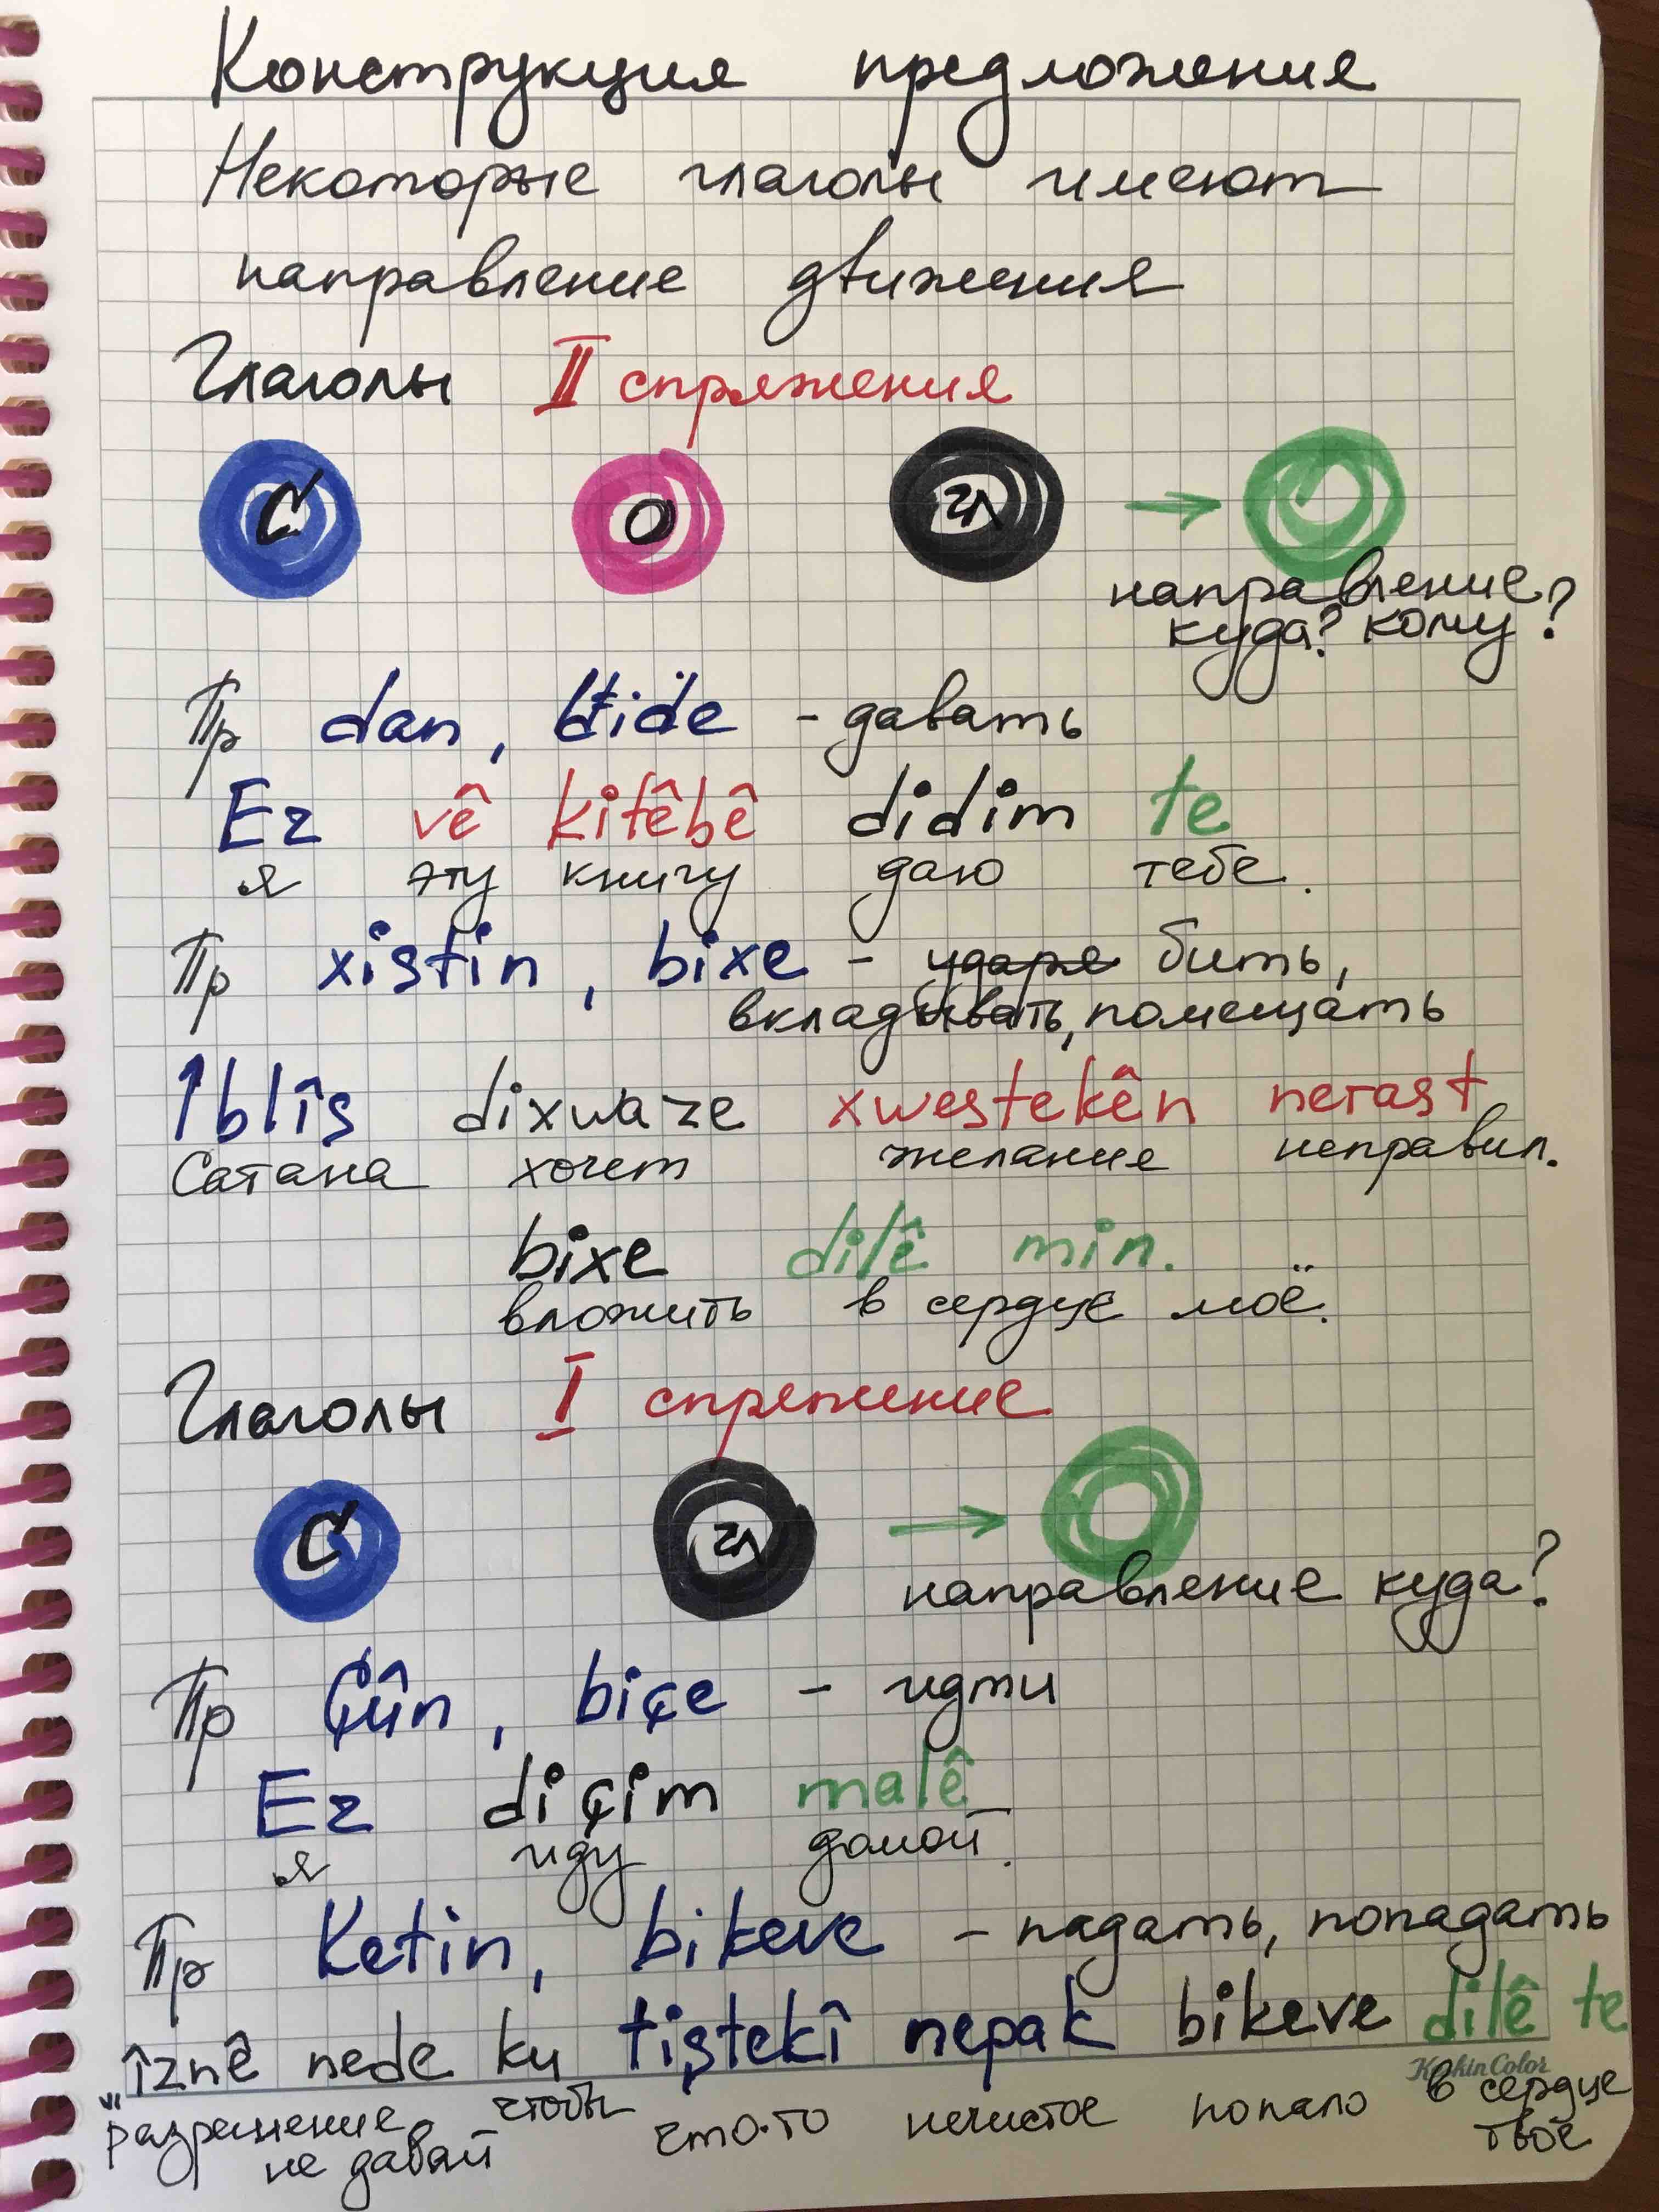 Конструкция предложения
Некоторые глаголы имеют
направление движения
Глаголы II спряжения
С О гл →
направление
куда? кому?
Пр dan, bide - давать
Ez vê kitêbê didim te
я эту книгу даю тебе.
Пр xistin, bixe - ударя бить,
вкладывать, помещать
Iblîs dixwaze xwestekên nerast
Сатана хочет желание неправил.
bixe dilê min.
вложить в сердце моё.
Глаголы I спряжение
С гл →
направление куда?
Пр Çûn, biçe - идти
Ez diçim malê
я иду домой.
Пр Ketin, bikeve - падать, попадать
îznê nede ku tiştekî nepak bikeve dilê te
KoshinColor
разрешение чтобы что-то нечистое попало в сердце
не давай твоё